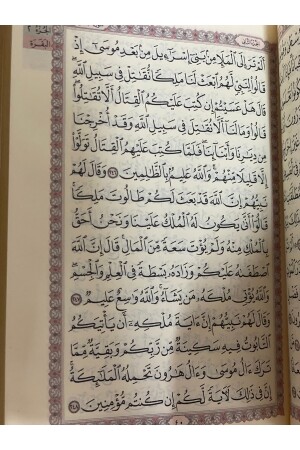 الجزء ٢
البقرة
أَلَمْ تَرَ إِلَى ٱلْمَلَإِ مِنۢ بَنِىٓ إِسْرَٰٓءِيلَ مِنۢ بَعْدِ مُوسَىٰٓ إِذْ
قَالُوا۟ لِنَبِىٍّ لَّهُمُ ٱبْعَثْ لَنَا مَلِكًا نُّقَٰتِلْ فِى سَبِيلِ ٱللَّهِ
قَالَ هَلْ عَسَيْتُمْ إِن كُتِبَ عَلَيْكُمُ ٱلْقِتَالُ أَلَّا تُقَٰتِلُوا۟
قَالُوا۟ وَمَا لَنَآ أَلَّا نُقَٰتِلَ فِى سَبِيلِ ٱللَّهِ وَقَدْ أُخْرِجْنَا
مِن دِيَٰرِنَا وَأَبْنَآئِنَا فَلَمَّا كُتِبَ عَلَيْهِمُ ٱلْقِتَالُ تَوَلَّوْا۟
إِلَّا قَلِيلًا مِّنْهُمْ وَٱللَّهُ عَلِيمٌۢ بِٱلظَّٰلِمِينَ ٢٤٦ وَقَالَ لَهُمْ
نَبِيُّهُمْ إِنَّ ٱللَّهَ قَدْ بَعَثَ لَكُمْ طَالُوتَ مَلِكًا
قَالُوٓا۟ أَنَّىٰ يَكُونُ لَهُ ٱلْمُلْكُ عَلَيْنَا وَنَحْنُ أَحَقُّ
بِٱلْمُلْكِ مِنْهُ وَلَمْ يُؤْتَ سَعَةً مِّنَ ٱلْمَالِ قَالَ إِنَّ ٱللَّهَ
ٱصْطَفَىٰهُ عَلَيْكُمْ وَزَادَهُۥ بَسْطَةً فِى ٱلْعِلْمِ وَٱلْجِسْمِ
وَٱللَّهُ يُؤْتِى مُلْكَهُۥ مَن يَشَآءُ وَٱللَّهُ وَٰسِعٌ عَلِيمٌ ٢٤٧
وَقَالَ لَهُمْ نَبِيُّهُمْ إِنَّ ءَايَةَ مُلْكِهِۦٓ أَن يَأْتِيَكُمُ
ٱلتَّابُوتُ فِيهِ سَكِينَةٌ مِّن رَّبِّكُمْ وَبَقِيَّةٌ مِّمَّا
تَرَكَ ءَالُ مُوسَىٰ وَءَالُ هَٰرُونَ تَحْمِلُهُ ٱلْمَلَٰٓئِكَةُ
إِنَّ فِى ذَٰلِكَ لَءَايَةً لَّكُمْ إِن كُنتُم مُّؤْمِنِينَ ٢٤٨